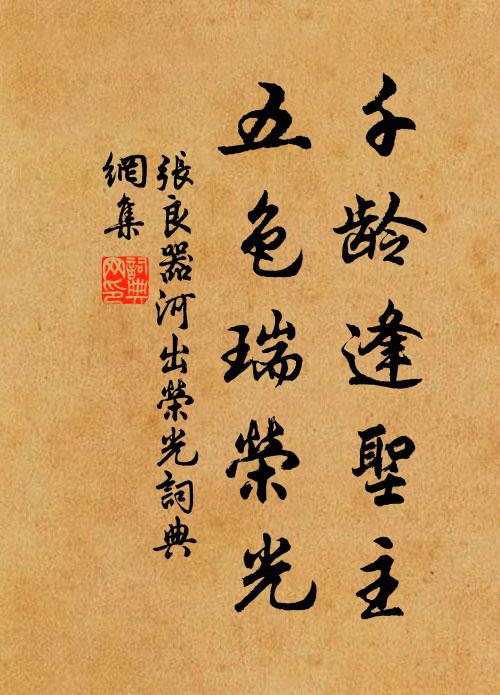 千龄逢聖主
五色瑞榮光
張良器河出榮光詞典
網集
詞典
网印